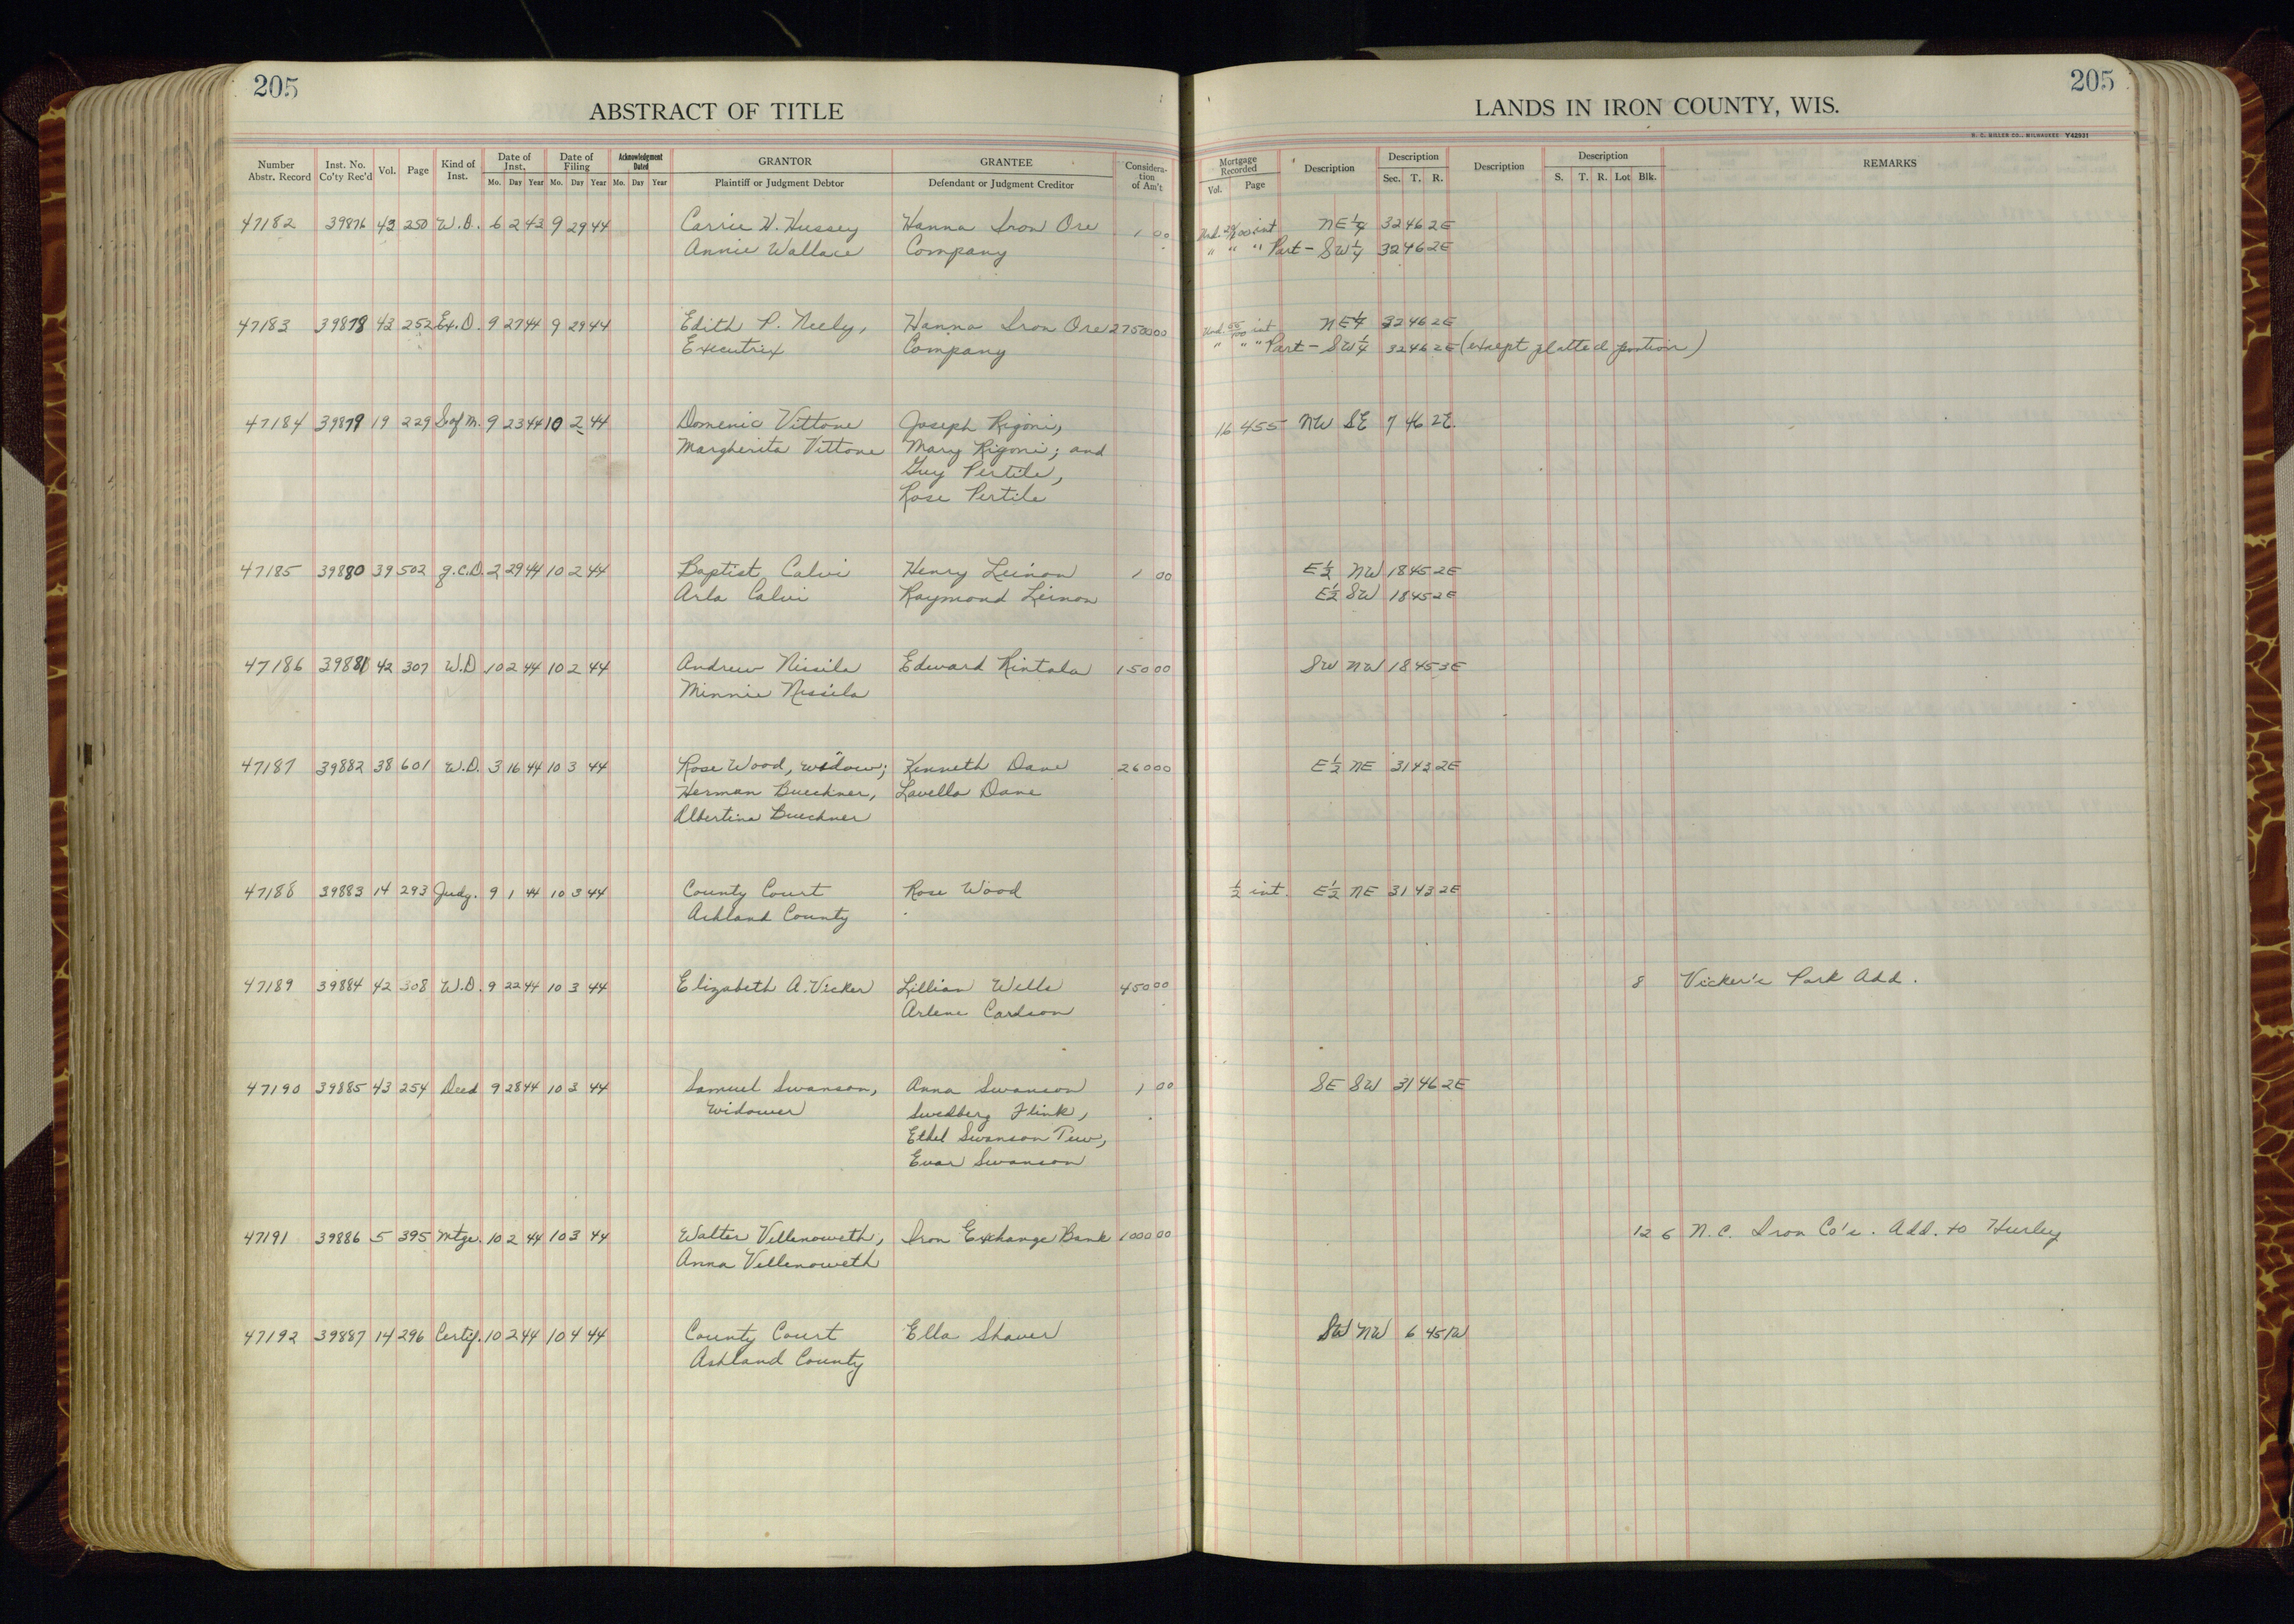 205
205
ABSTRACT OF TITLE
LANDS IN IRON COUNTY, WIS.
H. C. MILLER CO., MILWAUKEE Y42931
Number Abstr. Record Inst. No. Co'ty Rec'd Vol. Page Kind of Inst. Date of Inst. Mo. Day Year Date of Filing Mo. Day Year Acknowledgment Dated Mo. Day Year GRANTOR Plaintiff or Judgment Debtor GRANTEE Defendant or Judgment Creditor Considera-tion of Am't Mortgage Recorded Vol. Page Description Description Sec. T. R. Description Description S. T. R. Lot Blk. REMARKS
47182 39876 43 250 W.D. 6 2 43 9 29 44 Carrie H. Hussey Hanna Iron Ore 1 00 Und. int NE 1/4 32 46 2E
Annie Wallace Company " " " Part - SW 1/4 32 46 2E
47183 39878 43 252 Ex.D. 9 27 44 9 29 44 Edith P. Neely, Hanna Iron Ore 27500 00 Und. int NE 1/4 32 46 2E
Executrix Company " " " Part - SW 1/4 32 46 2E (except platted portion)
47184 39879 19 229 S of M. 9 23 44 10 2 44 Domenic Vittone Joseph Rigoni, 16 455 NW SE 7 46 2E.
Margherita Vittone Mary Rigoni; and
Guy Pertile,
Rose Pertile
47185 39880 39 502 q.C.D. 2 29 44 10 2 44 Baptist Calvi Henry Leinon 1 00 E 1/2 NW 18 45 2E
Arla Calvi Raymond Leinon E 1/2 SW 18 45 2E
47186 39881 42 307 W.D 10 2 44 10 2 44 Andrew Nissila Edward Rintala 150 00 SW NW 18 45 3E
Minnie Nissila
47187 39882 38 601 W.D. 3 16 44 10 3 44 Rose Wood, widow; Kenneth Dane 260 00 E 1/2 NE 31 43 2E
Herman Buechner, Lavella Dane
Albertina Buechner
47188 39883 14 293 Judg. 9 1 44 10 3 44 County Court Rose Wood 1/2 int. E 1/2 NE 31 43 2E
Ashland County
47189 39884 42 308 W.D. 9 22 44 10 3 44 Elizabeth A. Vicker Lillian Wells 450 00 8 Vicker's Park Add.
Arlene Cardson
47190 39885 43 254 Deed 9 28 44 10 3 44 Samuel Swanson, Anna Swanson 1 00 SE SW 31 46 2E
widower Swedberg Flink,
Ethel Swanson Tew,
Evar Swanson
47191 39886 5 395 Mtge. 10 2 44 10 3 44 Walter Vellenoweth, Iron Exchange Bank 1000 00 12 6 N.C. Iron Co's. Add. to Hurley
Anna Vellenoweth
47192 39887 14 296 Certif. 10 2 44 10 4 44 County Court Ella Shaver SW NW 6 45 1W
Ashland County